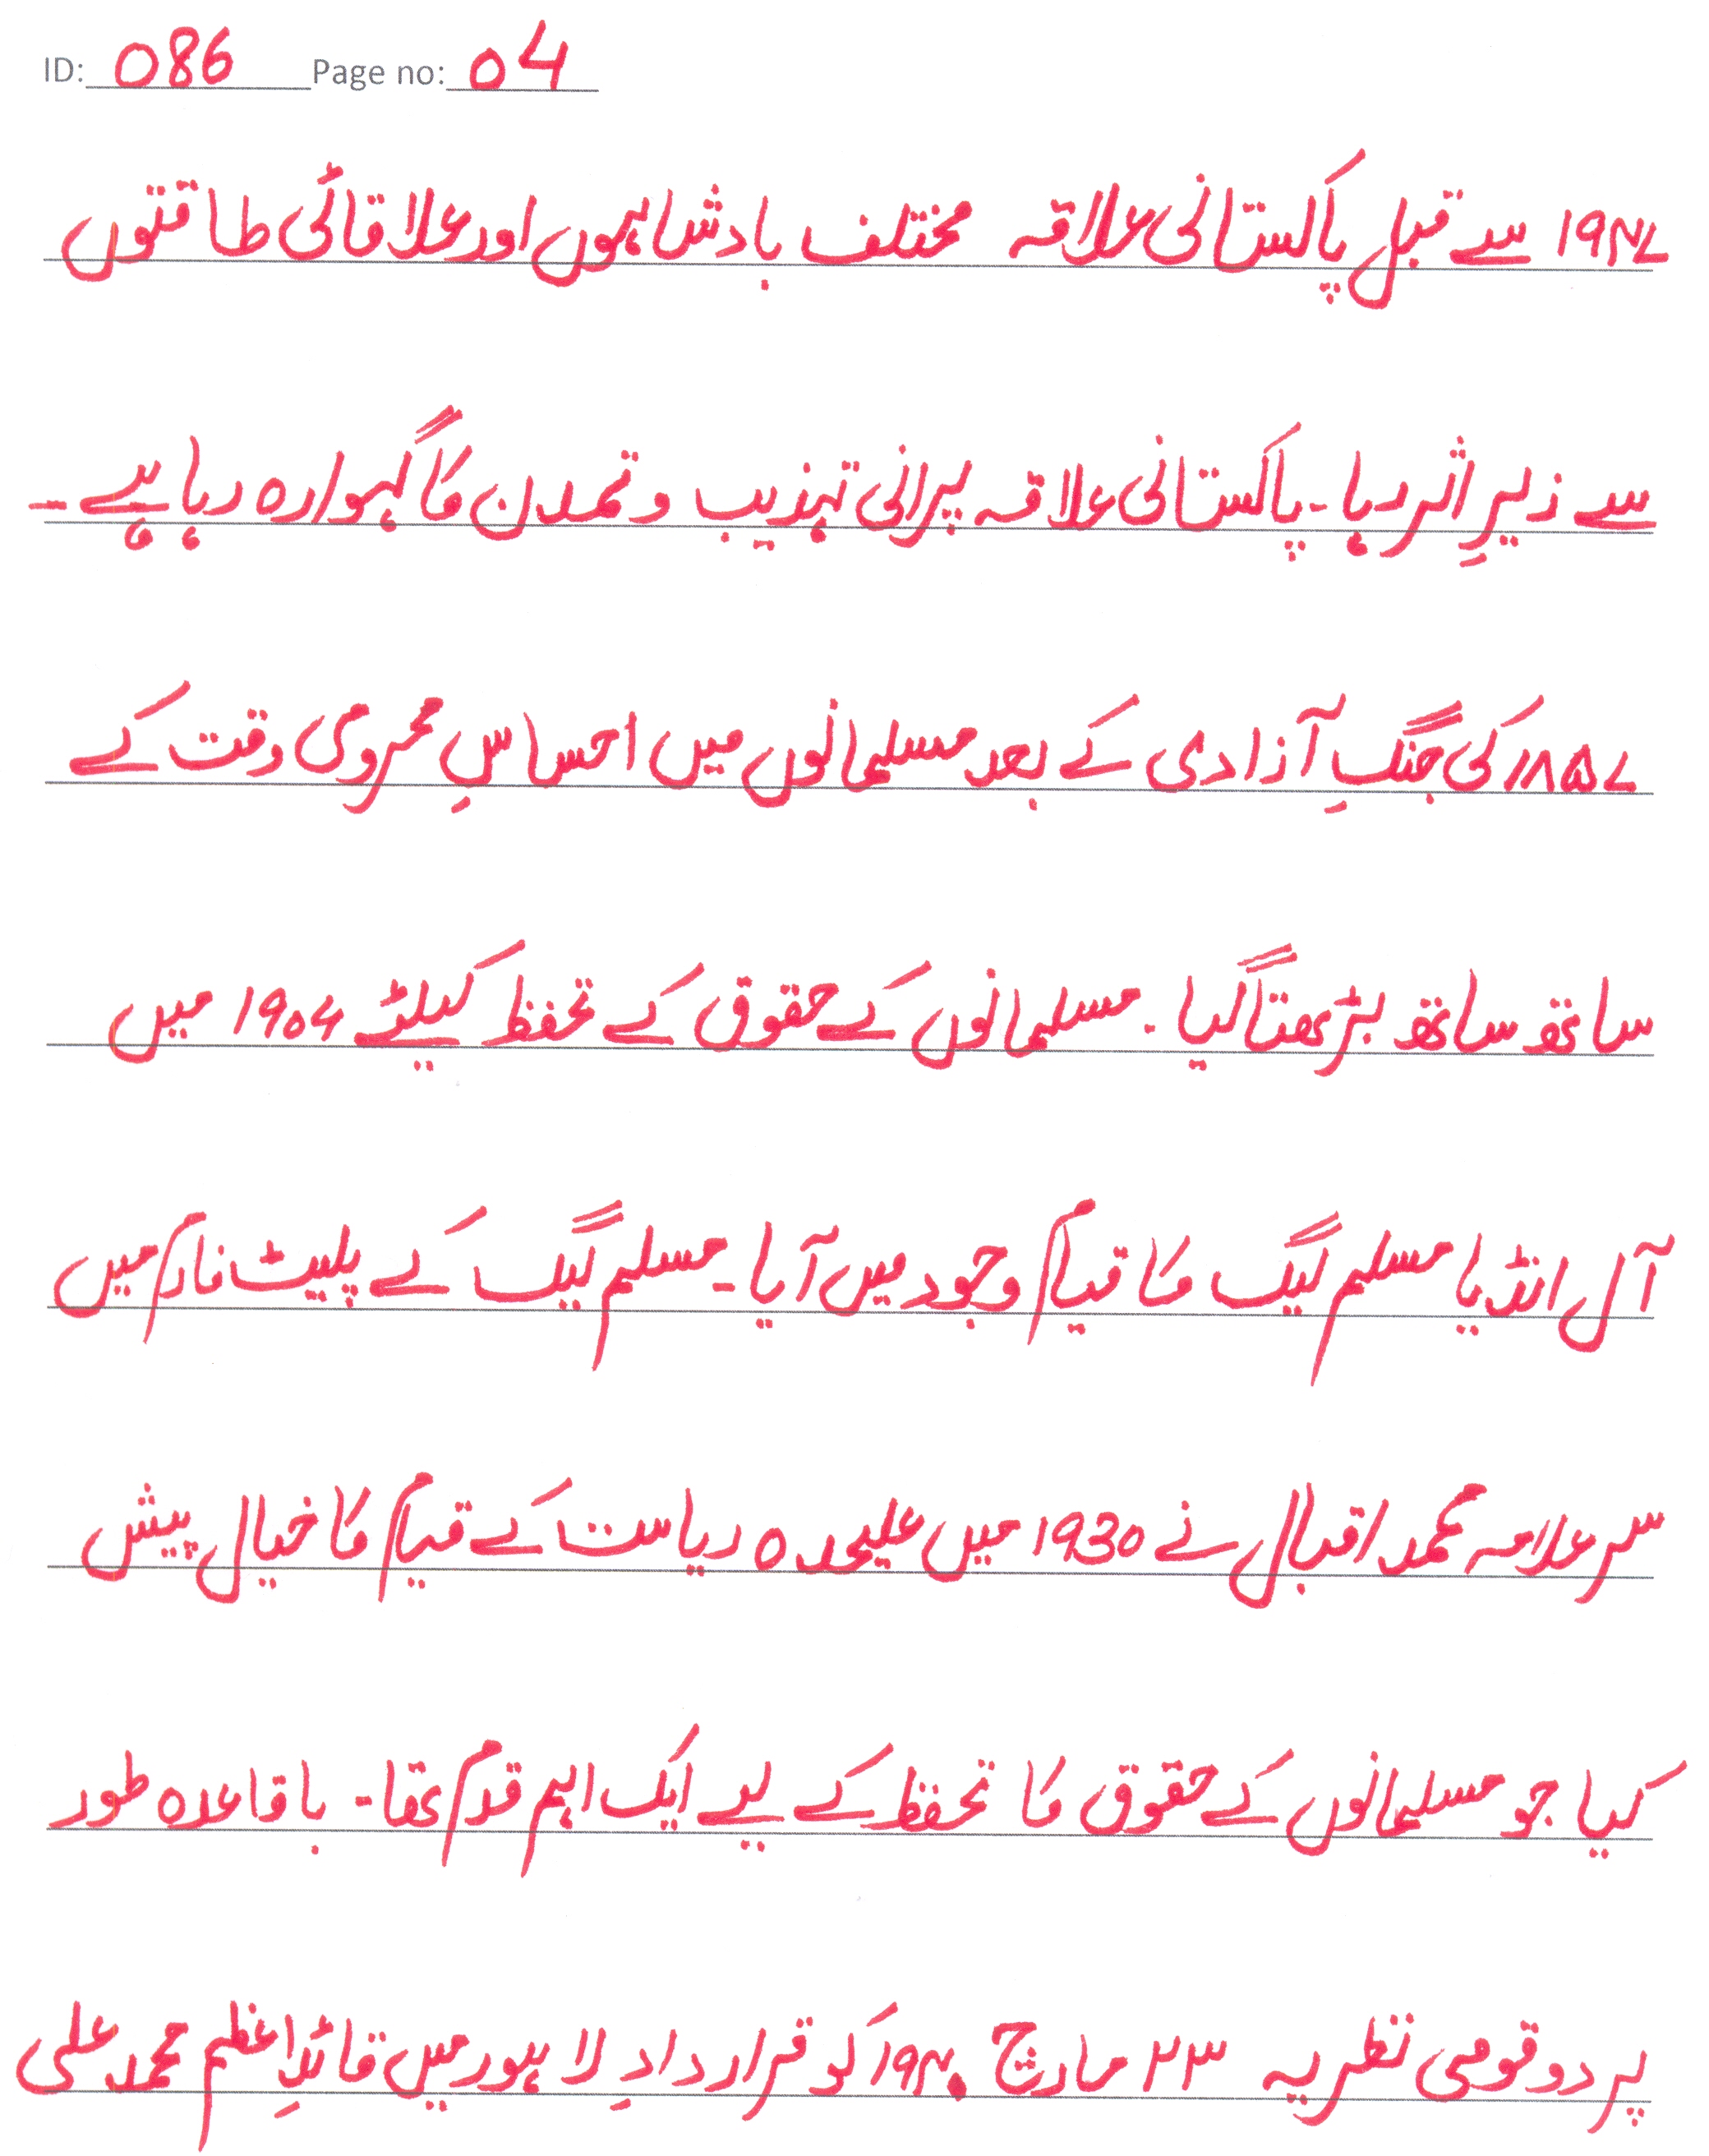 ID: 086 Page no: 04
۱۹۴۷ سے قبل پاکستانی علاقہ مختلف بادشاہوں اور علاقائی طاقتوں
سے زیرِ اثر رہا - پاکستانی علاقہ پرانی تہذیب و تمدن کا گہوارہ رہا ہے -
۱۸۵۷ کی جنگِ آزادی کے بعد مسلمانوں میں احساسِ محرومی وقت کے
ساتھ ساتھ بڑھتا گیا - مسلمانوں کے حقوق کے تحفظ کیلئے ۱۹۰۶ میں
آل انڈیا مسلم لیگ کا قیام وجود میں آیا - مسلم لیگ کے پلیٹ فارم میں
سر علامہ محمد اقبال نے 1930 میں علیحدہ ریاست کے قیام کا خیال پیش
کیا جو مسلمانوں کے حقوق کا تحفظ کے لیے ایک اہم قدم تھا - باقاعدہ طور
پر دو قومی نظریہ ۲۳ مارچ ۱۹۴۰ کو قراردادِ لاہور میں قائدِاعظم محمد علی